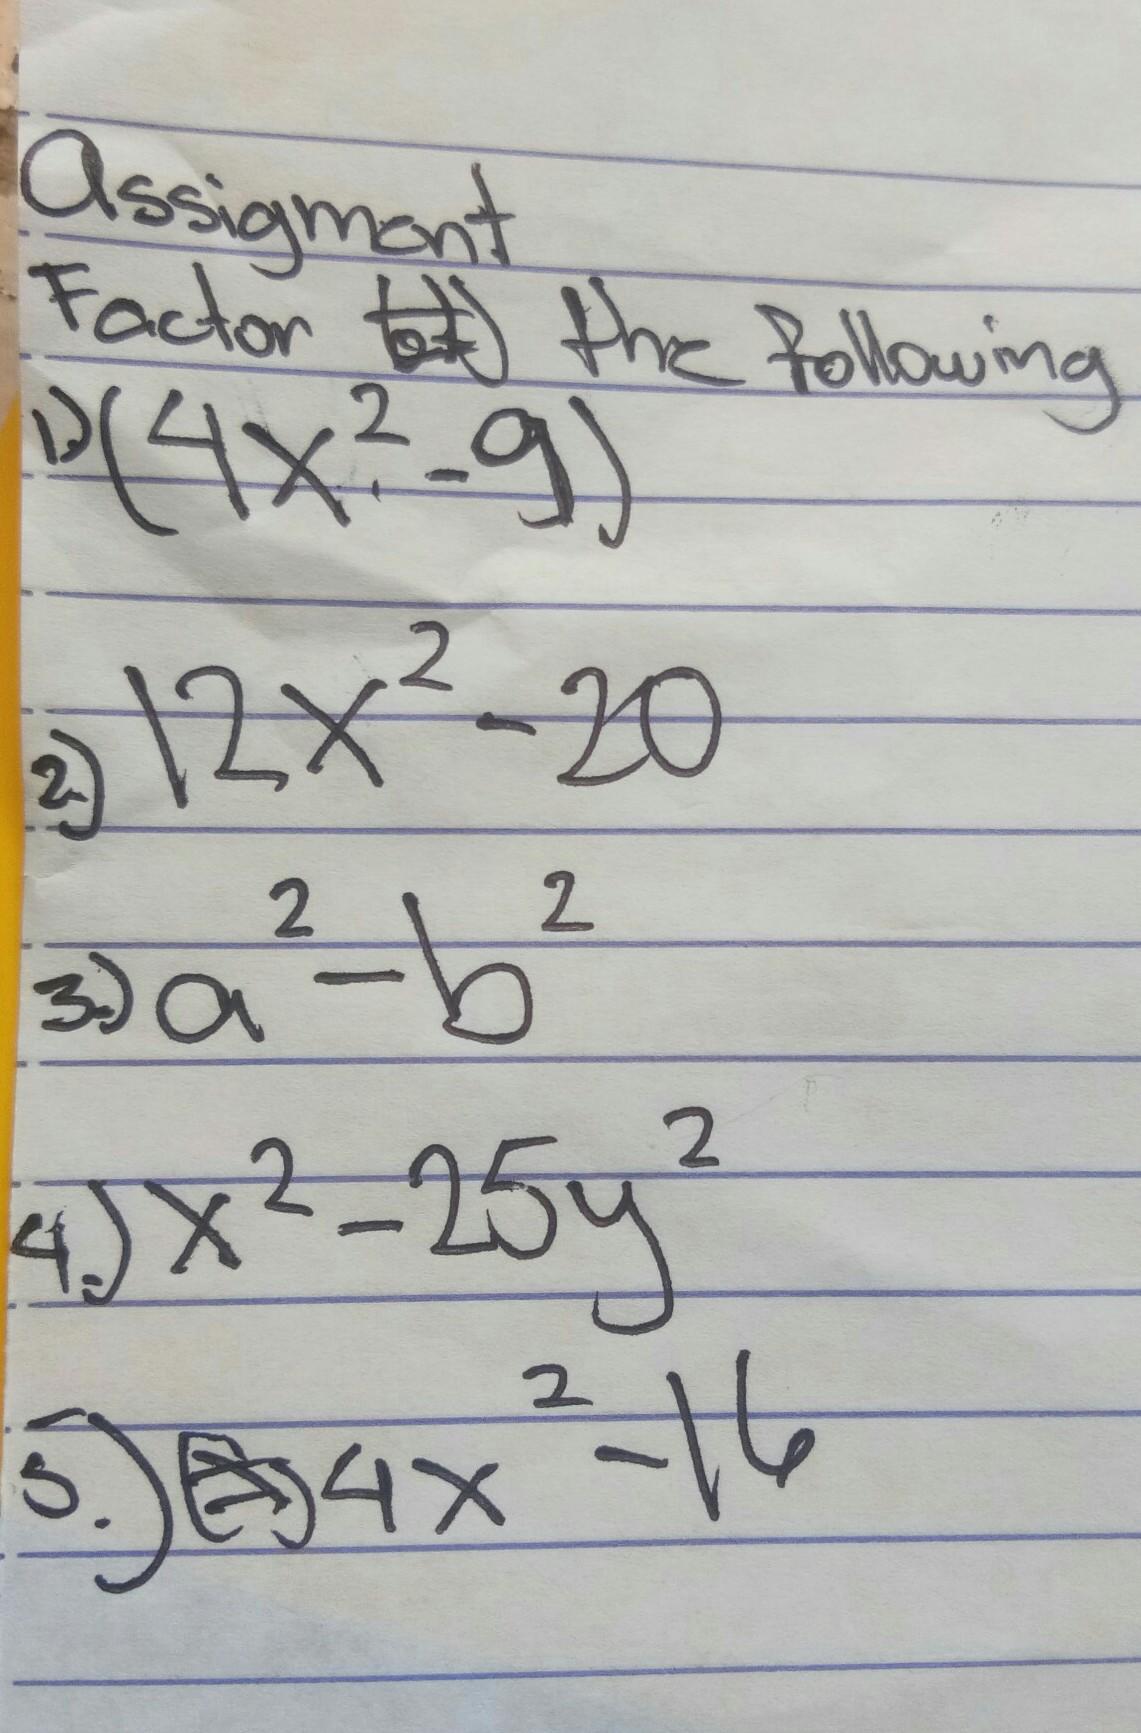 Assigment
Factor the following
1.) (4x² - 9)
2.) 12x² - 20
3.) a² - b²
4.) x² - 25y²
5.) 4x² - 16